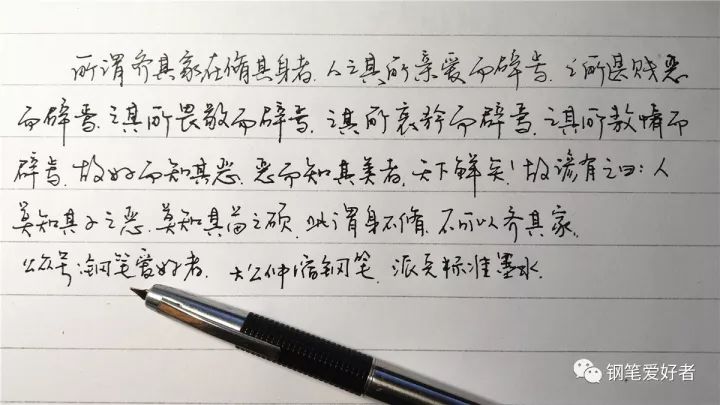 所谓齐其家在脩其身者，人之其所亲爱而辟焉，之所其贱恶
而辟焉，之其所畏敬而辟焉，之其所哀矜而辟焉，之其所敖惰而
辟焉，故好而知其恶，恶而知其美者，天下鲜矣！故谚有之曰：人
莫知其子之恶，莫知其苗之硕，此谓身不脩，不可以齐其家。
公众号：钢笔爱好者，大公伸缩钢笔，派克标准墨水。
钢笔爱好者